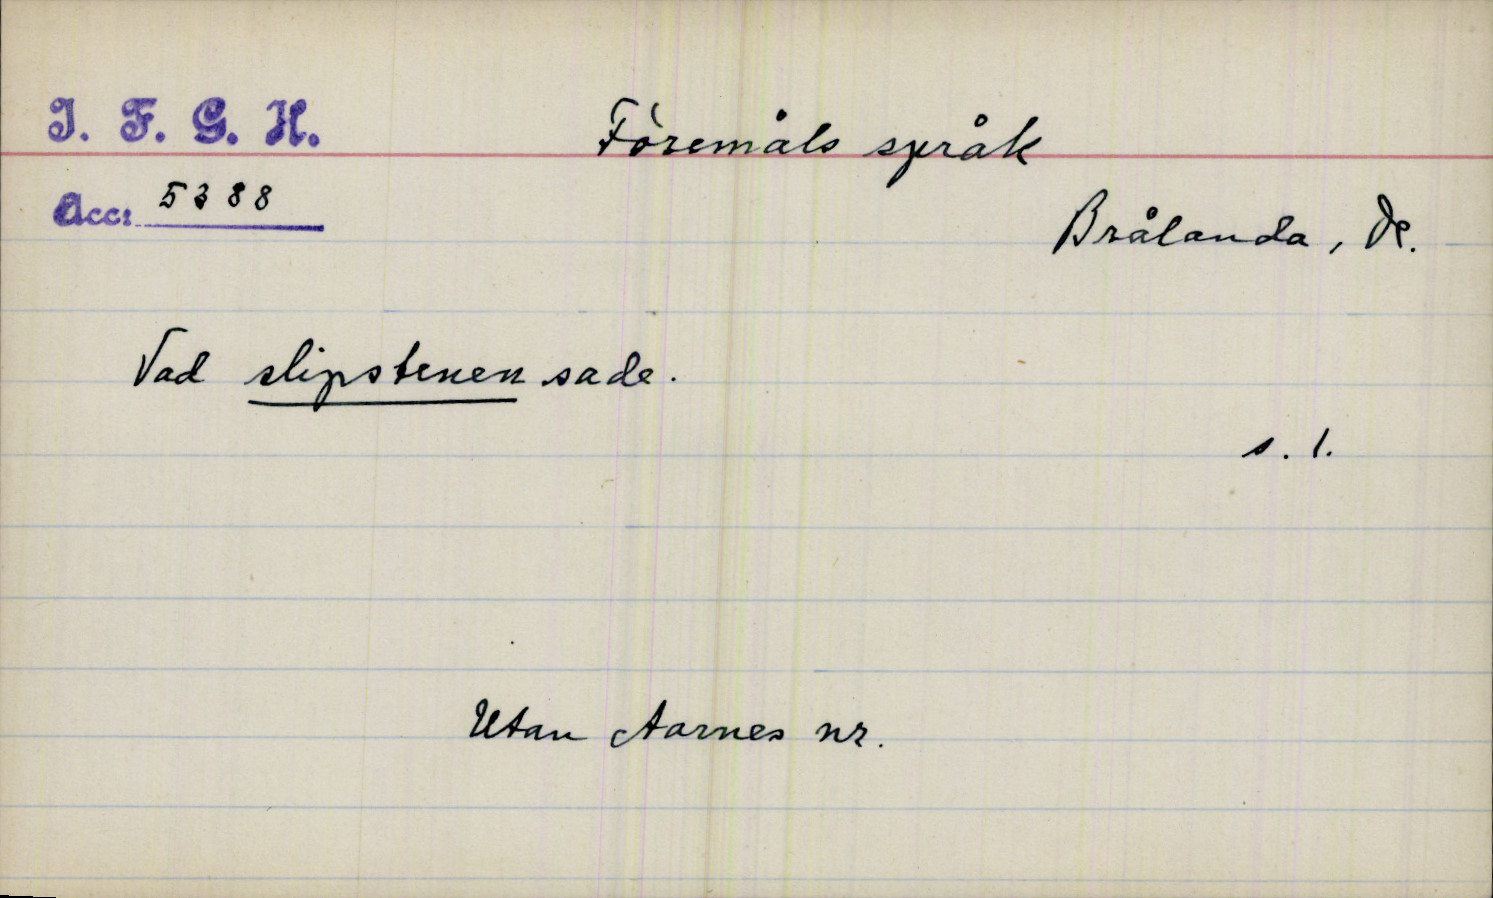 I. F. G. H.
Föremåls språk
Acc: 5388
Brålanda, Ds.
Vad slipstenen sade.
s. 1.
Utan Aarnes nr.